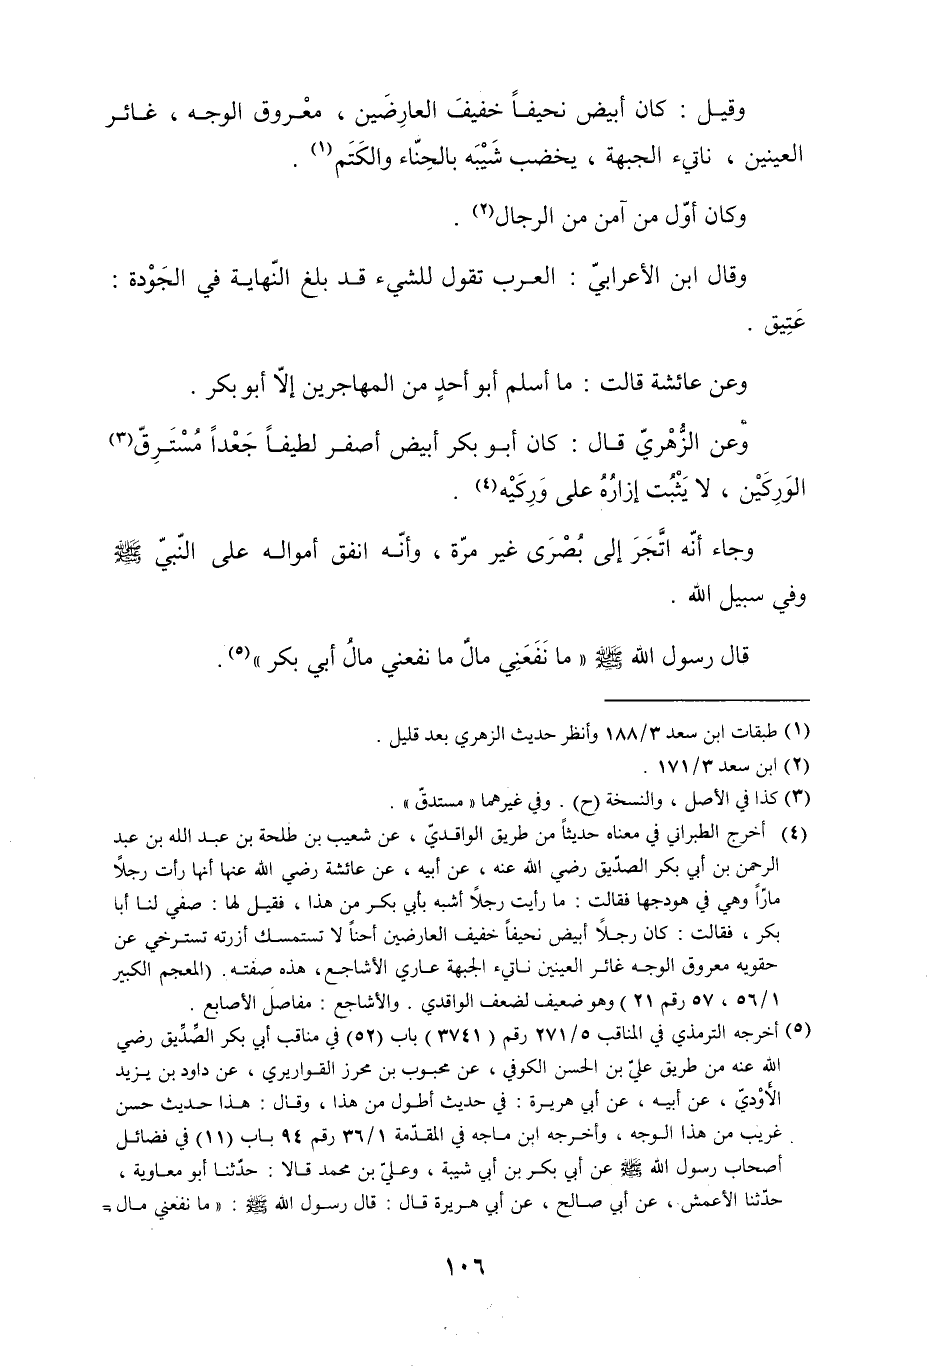 وقيـل : كان أبيض نحيفـاً خفيفَ العارِضَين ، معْـروق الوجـه ، غـائـر
العينين ، ناتيء الجبهة ، يخضب شَيْبَه بالحِنّاء والكَتَم(١) .
وكان أوّل من آمن من الرجال(٢) .
وقال ابن الأعرابيّ : العـرب تقول للشيء قـد بلغ النّهاية في الجَوْدة :
عَتِيق .
وعن عائشة قالت : ما أسلم أبو أحدٍ من المهاجرين إلّا أبو بكر .
وعن الزُّهْريّ قـال : كان أبـو بكر أبيض أصفـر لطيفـاً جَعْداً مُسْتَـرِقّ(٣)
الوَرِكَيْن ، لا يَثْبُت إزارُهُ على وَرِكَيْه(٤) .
وجاء أنّه اتَّجَرَ إلى بُصْرَى غير مرّة ، وأنّـه انفق أموالـه على النّبيّ ﷺ
وفي سبيل الله .
قال رسول الله ﷺ « ما نَفَعَنِي مالٌ ما نفعني مالُ أبي بكر »(٥) .
(١) طبقات ابن سعد ١٨٨/٣ وأنظر حديث الزهري بعد قليل .
(٢) ابن سعد ١٧١/٣ .
(٣) كذا في الأصل ، والنسخة (ح) . وفي غيرهما « مستدقّ » .
(٤) أخرج الطبراني في معناه حديثاً من طريق الواقديّ ، عن شعيب بن طلحة بن عبـد الله بن عبد
الرحمن بن أبي بكر الصدّيق رضي الله عنه ، عن أبيه ، عن عائشة رضي الله عنها أنها رأت رجلًا
مارّاً وهي في هودجها فقالت : ما رأيت رجلًا أشبه بأبي بكـر من هذا ، فقيـل لها : صفي لنـا أبا
بكر ، فقالت : كان رجـلًا أبيض نحيفـاً خفيف العارضين أحناً لا تستمسـك أزرته تستـرخي عن
حقويه معروق الوجـه غائـر العينين نـاتيء الجبهة عـاري الأشاجـع، هذه صفتـه. (المعجم الكبير
٥٦/١ ، ٥٧ رقم ٢١ ) وهو ضعيف لضعف الواقدي . والأشاجع : مفاصل الأصابع .
(٥) أخرجه الترمذي في المناقب ٢٧١/٥ رقم ( ٣٧٤١ ) باب (٥٢) في مناقب أبي بكر الصِّدِّيق رضي
الله عنه من طريق عليّ بن الحسن الكوفي ، عن محبوب بن محرز القـواريري ، عن داود بن يـزيد
الأَوْديّ ، عن أبيه ، عن أبي هريرة : في حديث أطول من هذا ، وقال : هـذا حـديث حسن
غريب من هذا الـوجه ، وأخـرجه ابن مـاجه في المقدّمة ٣٦/١ رقم ٩٤ بـاب (١١) في فضائـل
أصحاب رسول الله ﷺ عن أبي بكـر بن أبي شيبة ، وعليّ بن محمد قـالا : حدّثنـا أبو معـاوية ،
حدّثنا الأعمش ، عن أبي صـالح ، عن أبي هـريرة قـال : قال رسـول الله ﷺ : « ما نفعني مـال =
١٠٦